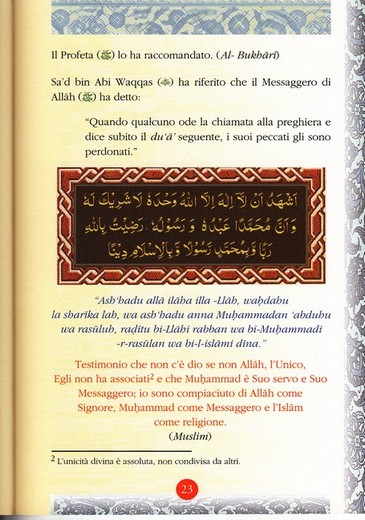 Il Profeta (ﷺ) lo ha raccomandato. (Al- Bukhârî)
Sa'd bin Abi Waqqas (رضي الله عنه) ha riferito che il Messaggero di
Allâh (ﷺ) ha detto:
“Quando qualcuno ode la chiamata alla preghiera e
dice subito il du‘â’ seguente, i suoi peccati gli sono
perdonati.”
اَشْهَدُ اَنْ لَآ اِلٰهَ اِلَّا اللهُ وَحْدَهُ لَا شَرِيْكَ لَهُ
وَاَنَّ مُحَمَّدًا عَبْدُهُ وَ رَسُوْلُهُ، رَضِيْتُ بِاللهِ
رَبًّا وَبِمُحَمَّدٍ رَسُوْلًا وَبِالْاِسْلَامِ دِيْنًا
“Ash‘hadu allâ ilâha illa -Llâh, waḥdahu
la sharîka lah, wa ash‘hadu anna Muḥammadan ‘abduhu
wa rasûluh, raḍîtu bi-Llâhi rabban wa bi-Muḥammadi
-r-rasûlan wa bi-l-islâmi dîna.”
Testimonio che non c'è dio se non Allâh, l'Unico,
Egli non ha associati² e che Muḥammad è Suo servo e Suo
Messaggero; io sono compiaciuto di Allâh come
Signore, Muḥammad come Messaggero e l'Islâm
come religione.
(Muslim)
² L'unicità divina è assoluta, non condivisa da altri.
23